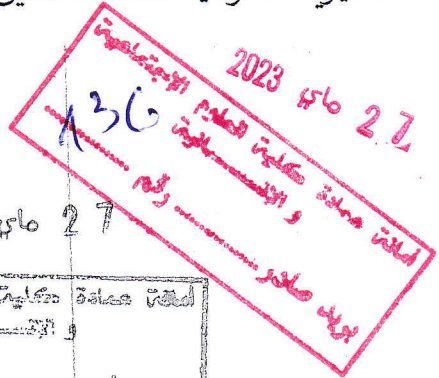 27 ماي 2023
أمانة عمادة كلية العلوم الاجتماعية
و الإنسانية
بريد صادر رقم
136
27 ماي
أمانة عمادة كلية